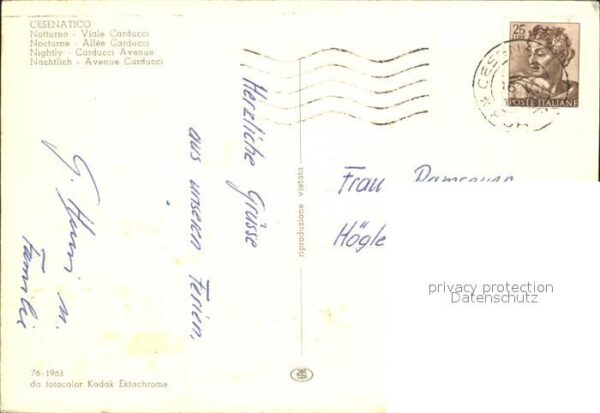 CESENATICO
Notturno - Viale Carducci
Nocturne - Allée Carducci
Nightly - Carducci Avenue
Nachtlich - Avenue Carducci
Herzliche Grüsse
aus unseren Ferien.
Familie
riproduzione vietata
25
POSTE ITALIANE
Frau
Högle
privacy protection
Datenschutz
76 - 1963
da fotocolor Kodak Ektachrome